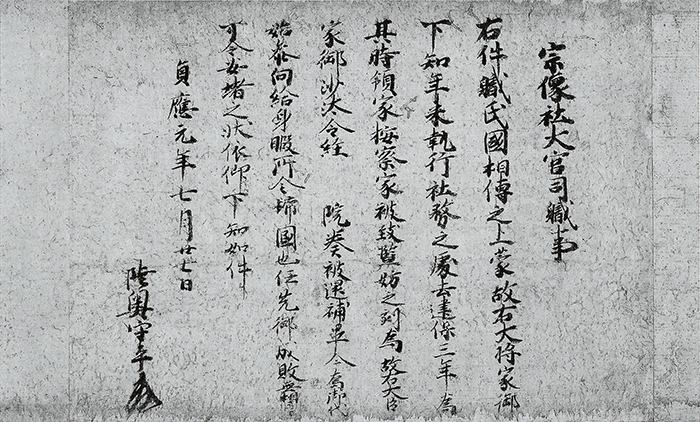 宗像社大宮司職事
右件職氏國相傳之上蒙故右大将家御
下知年来執行社務之處去建保三年為
其時領家按察家被致濫妨之刻為故右大臣
家御沙汰令経　院奏被還補畢今為御代
始参向給身暇所令歸國也任先御成敗無
可令安堵之状依仰下知如件
貞應元年七月廿七日
陸奥守平